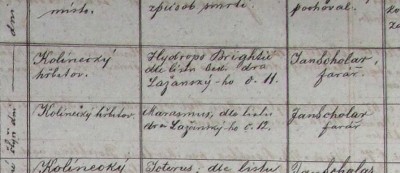 místo.
způsob smrti
pochoval.
Kolinecký
hřbitov.
Hydrops Brightii
dle listu
Lažanský-ho č. 11.
Jan Scholar,
farář.
Kolinecký hřbitov.
Marasmus, dle listu
dra Lažanský-ho č. 12.
Jan Scholar
farář
Kolinecký
Icterus, dle listu
Jan Scholar